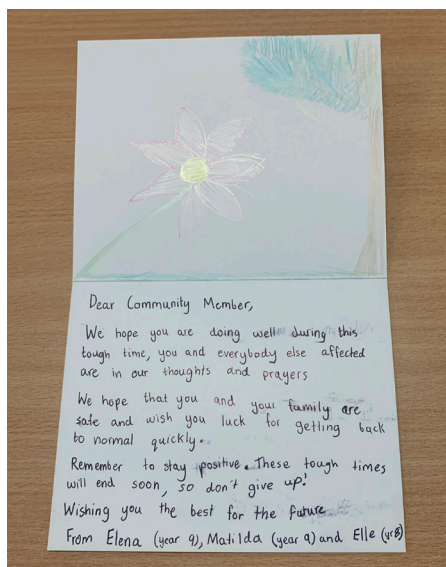 Dear Community Member,
We hope you are doing well during this
tough time, you and everybody else affected
are in our thoughts and prayers
We hope that you and your family are
safe and wish you luck for getling back
to normal quickly.
Remember to stay positive. These tough times
will end soon, so don't give up!
Wishing you the best for the future
From Elena (year 9), Matilda (year 9) and Elle (yr8)